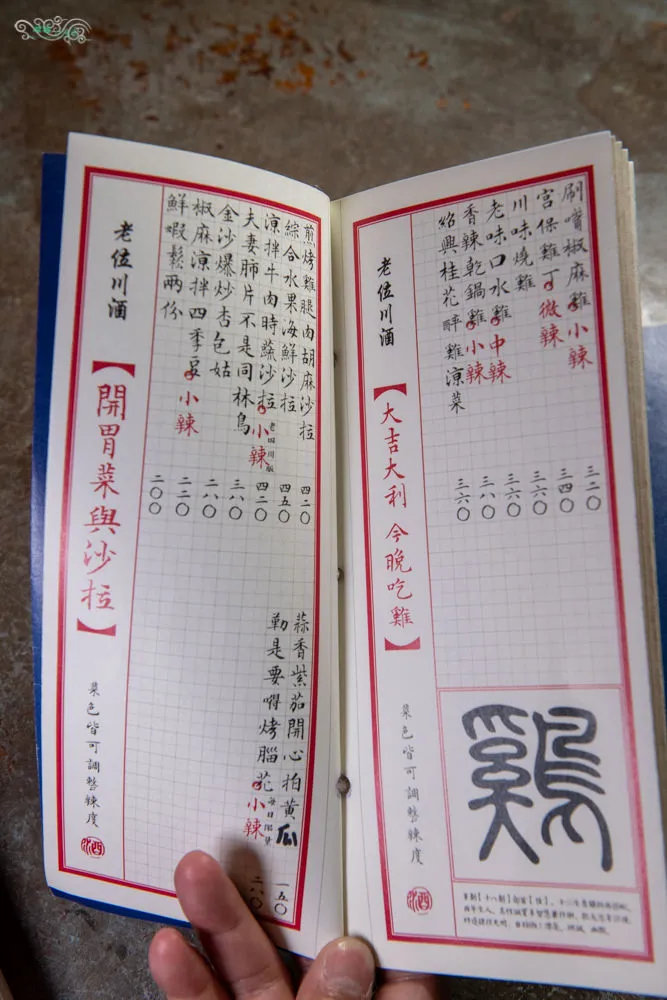 刷嘴椒麻雞 小辣 三二〇
宮保雞丁 微辣 三四〇
川味燒雞 三六〇
老味口水雞 中辣 三六〇
香辣乾鍋雞 小辣 三八〇
紹興桂花醉雞涼菜 三六〇
雞
老位川酒 【大吉大利 今晚吃雞】 菜色皆可調整辣度
煎烤雞腿肉胡麻沙拉 四二〇
綜合水果海鮮沙拉 四五〇
涼拌牛肉時蔬沙拉 小辣 四二〇
夫妻肺片不是同林鳥 三八〇
金沙爆炒杏包菇 二八〇
椒麻涼拌四季豆 小辣 二二〇
鮮蝦鬆兩份 二〇〇
蒜香紫茄開心拍黃瓜 一五〇
勒是要嘚烤腦花 每日限量 小辣 二六〇
老位川酒 【開胃菜與沙拉】 菜色皆可調整辣度